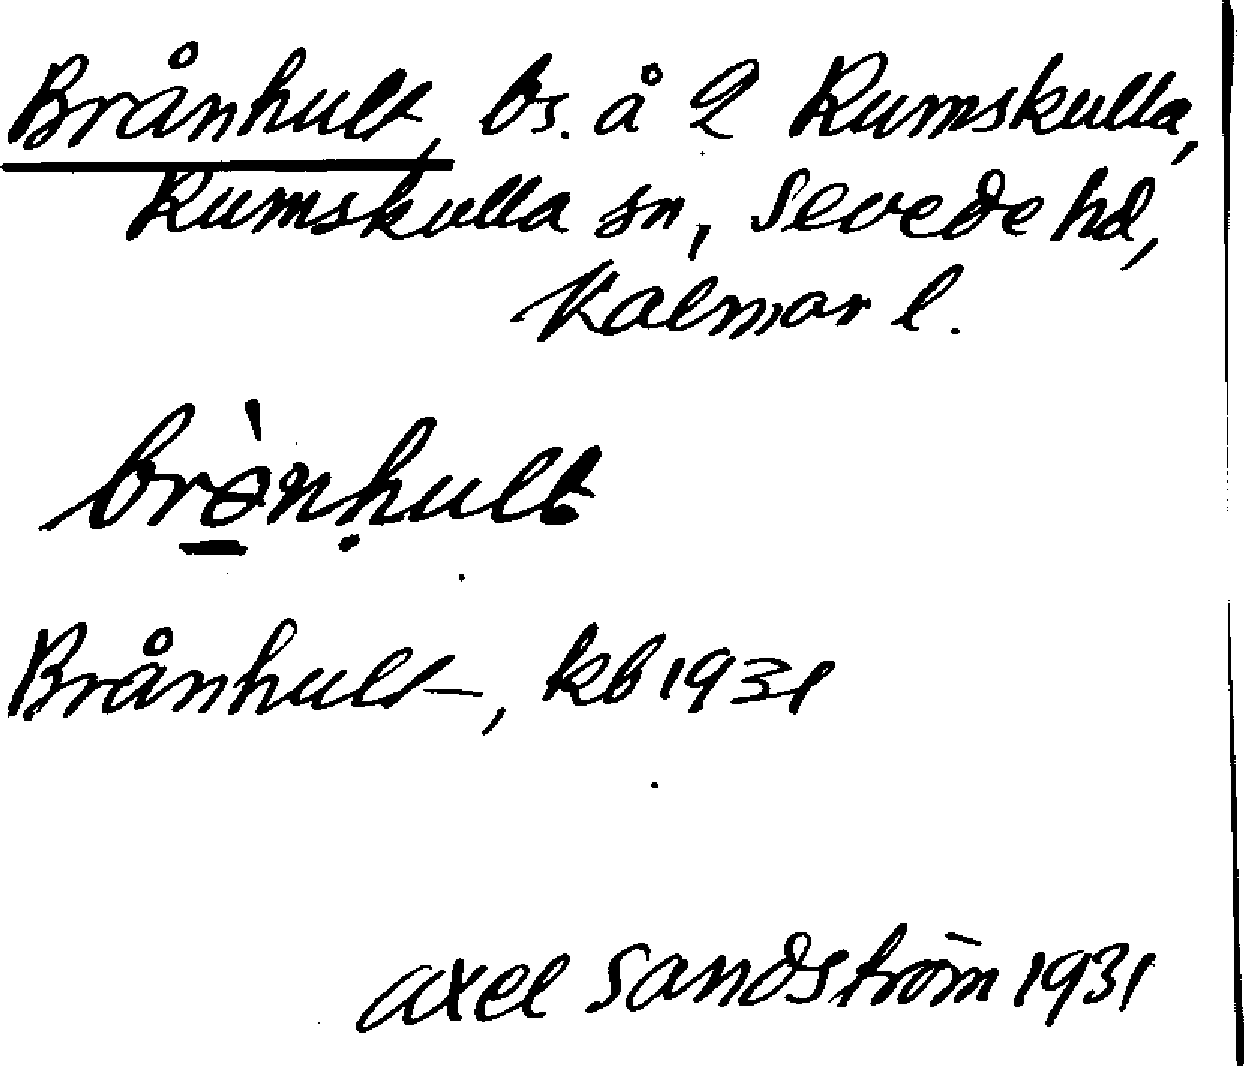 Brånhult, bs. å 2 Rumskulla,
Rumskulla sn, Sevede hd,
Kalmar l.
brə̱̀nḥult
Brånhult, kb 1931
Axel Sandström 1931